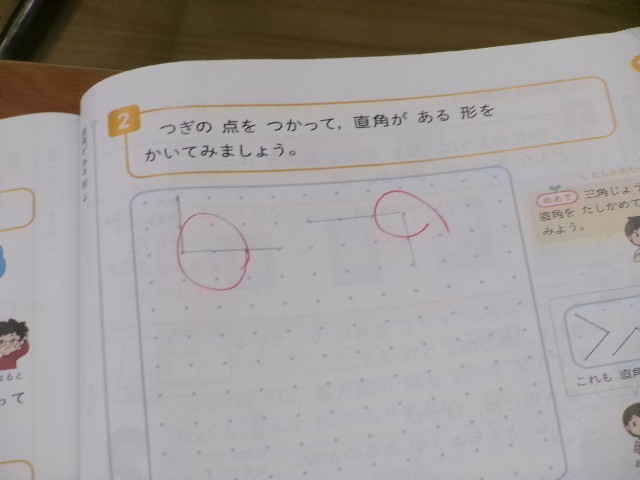 2
つぎの 点を つかって，直角が ある 形を
かいてみましょう。
めあて 三角じょう
直角を たしかめて
みよう。
これも 直角